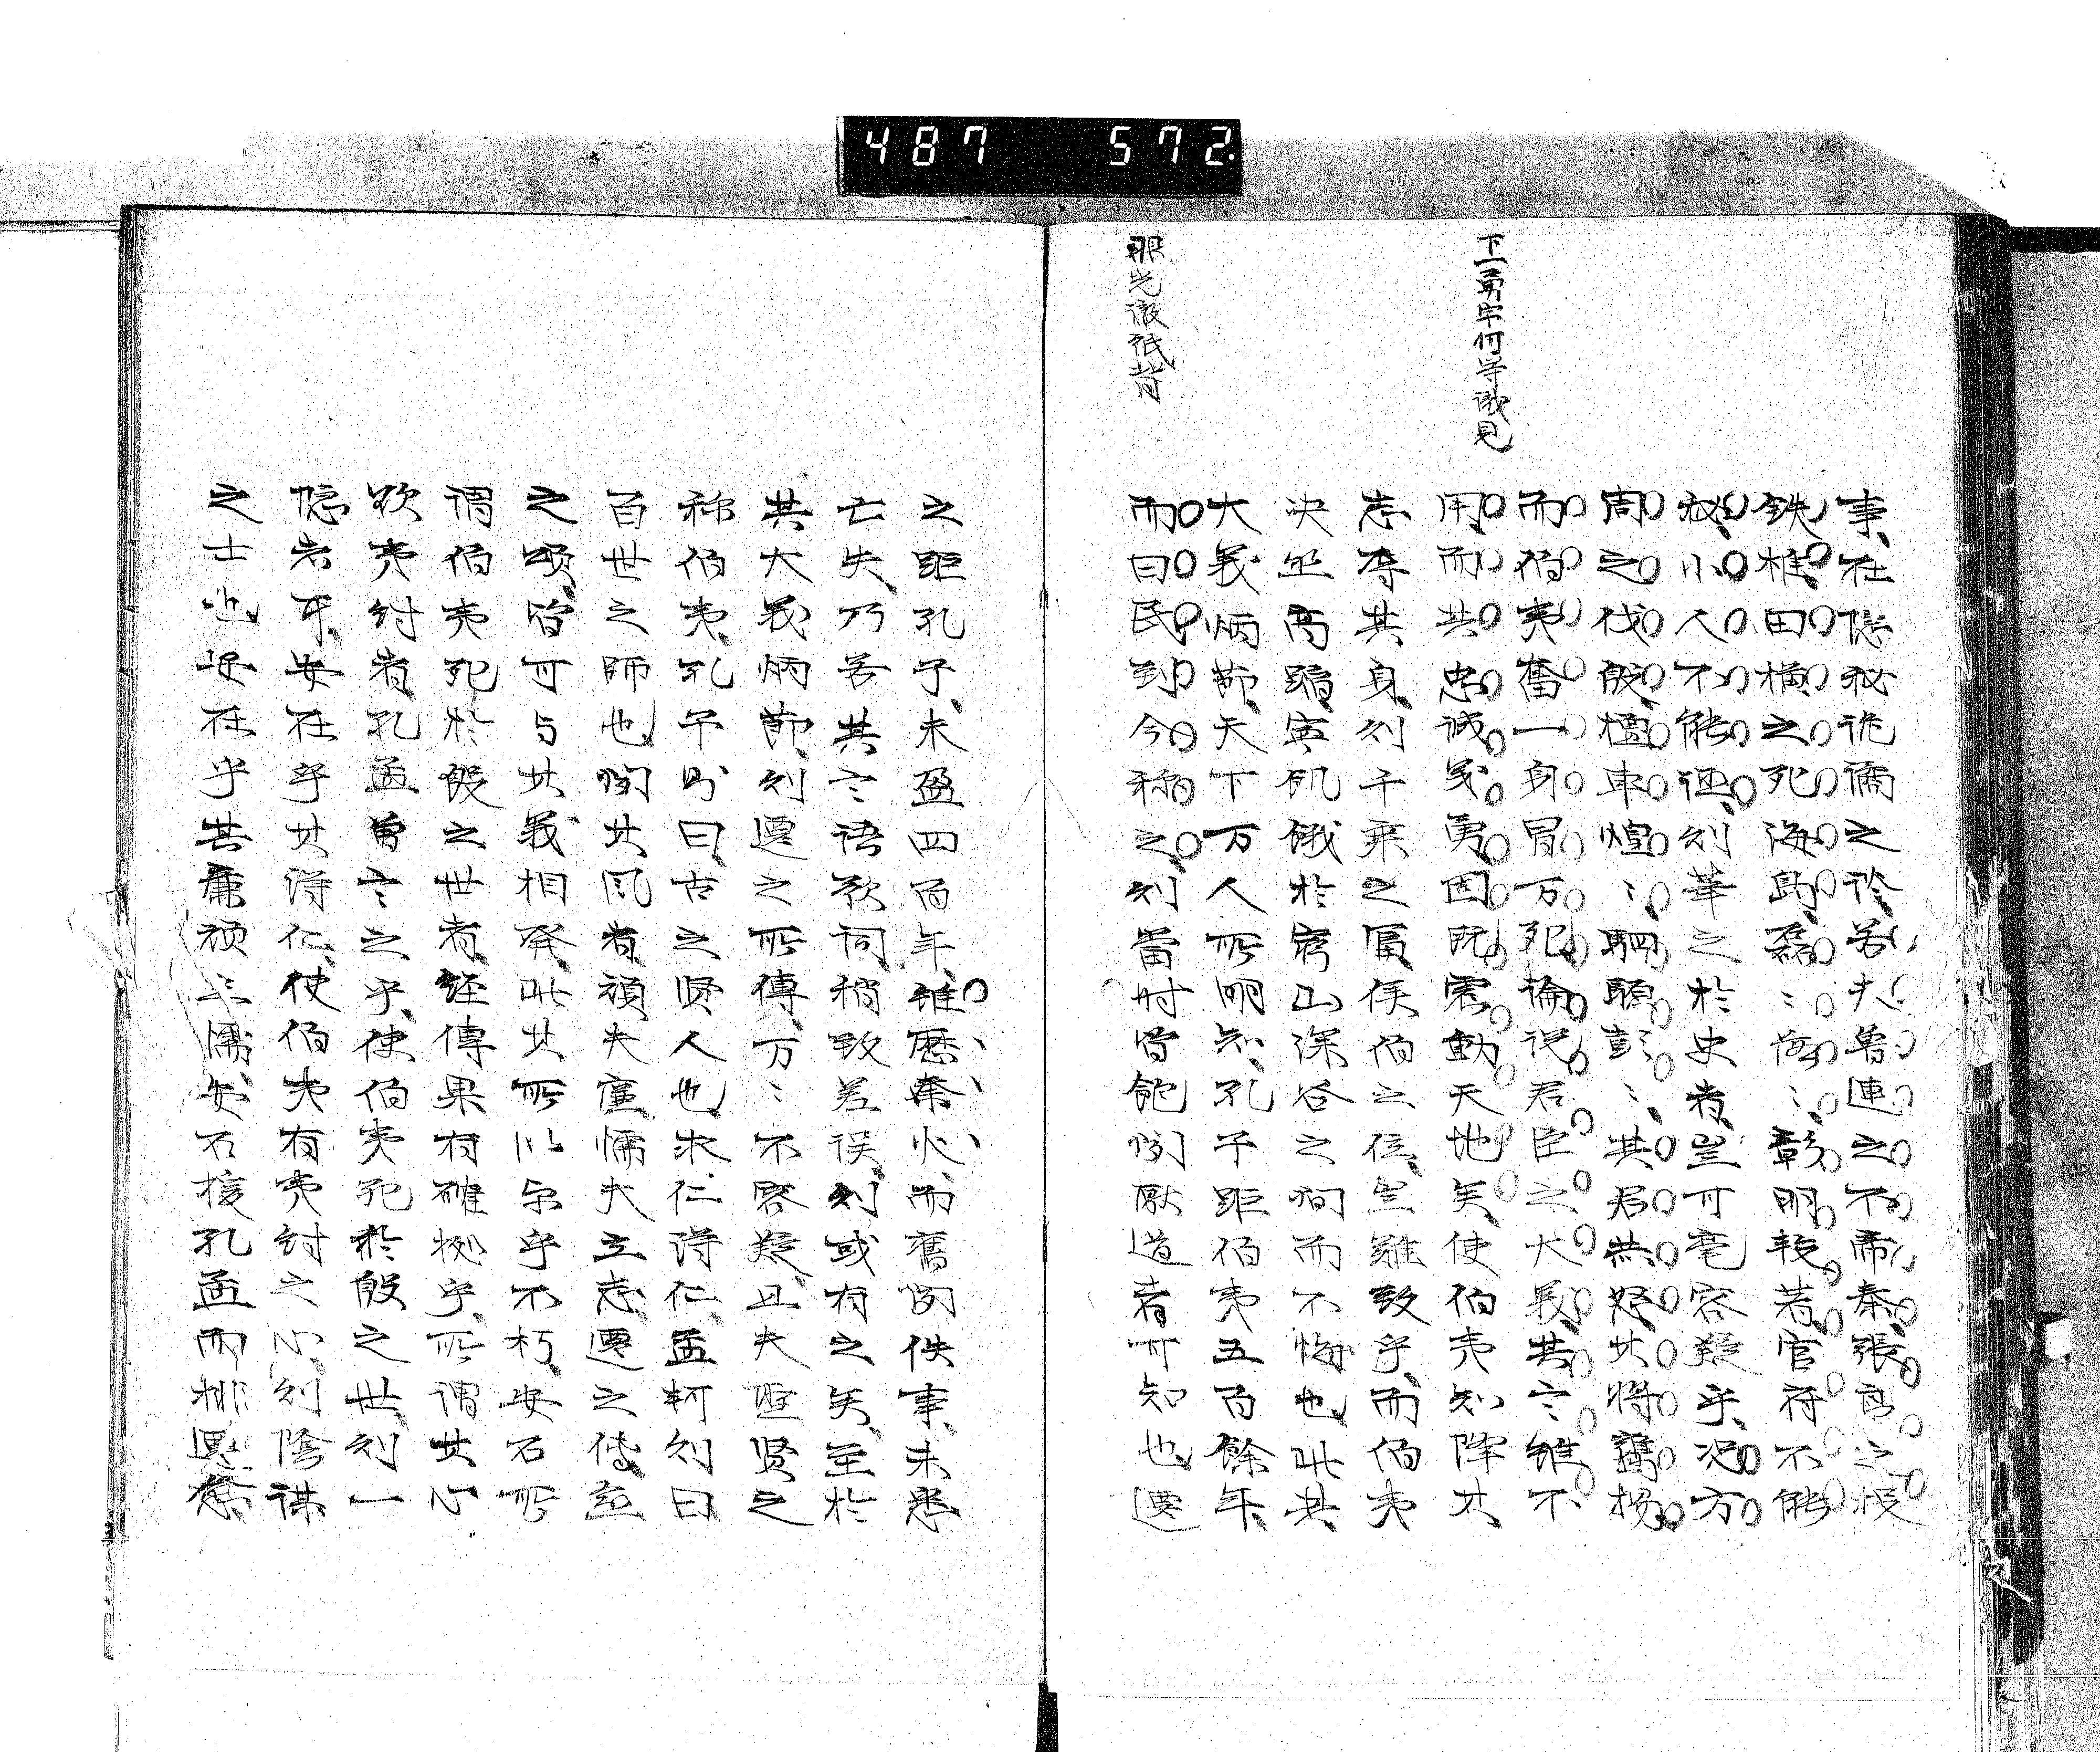 487 572.
下一勇字何等識見
眼光徹紙背
事、在隠秘詭譎之迹、若夫魯連之不帝秦、張良之投
鉄椎、田横之死海島、磊〻落〻、彰明較著、官府不能
秘、小人不能誣、則筆之於史者、豈可毫容疑乎、況方
周之伐殷、檀車煌〻、駟騵彭〻、其君共怒、其将鷹揚、
而伯夷奮一身、冒万死、論説君臣之大義、其言雖不
用、而其忠誠義勇、固既震動天地矣、使伯夷知降其
志辱其身、則千乘之富、侯伯之位、豈難致乎、而伯夷
決然高蹈、寔飢餓於窮山深谷之間而不悔也、此其
大義炳節、天下万人所明知、孔子距伯夷五百餘年、
而曰民到今称之、則當時皆飽聞厭道者可知也、遷
之距孔子、未盈四百年、雖歷秦火、而舊聞佚事、未悉
亡失、乃若其言語歌詞、稍致差誤、則或有之矣、至於
其大義炳節、則遷之所傳、万〻不容疑、且夫聖賢之
称伯夷、孔子則曰、古之賢人也、求仁得仁、孟軻則曰
百世之師也、聞其風者、頑夫廉、懦夫立志、遷之傳、
之頌、皆可与其義相発、此其所以示乎不朽、安石所
謂伯夷死於殷之世者、経傳果有確拠乎、所謂其心
欲夷紂者、孔孟曽言之乎、使伯夷死於殷之世、則一
隠者耳、安在乎其得仁、使伯夷有夷紂之心、則陰謀
之士也、安在乎其廉頑立懦、安石援孔孟而排遷